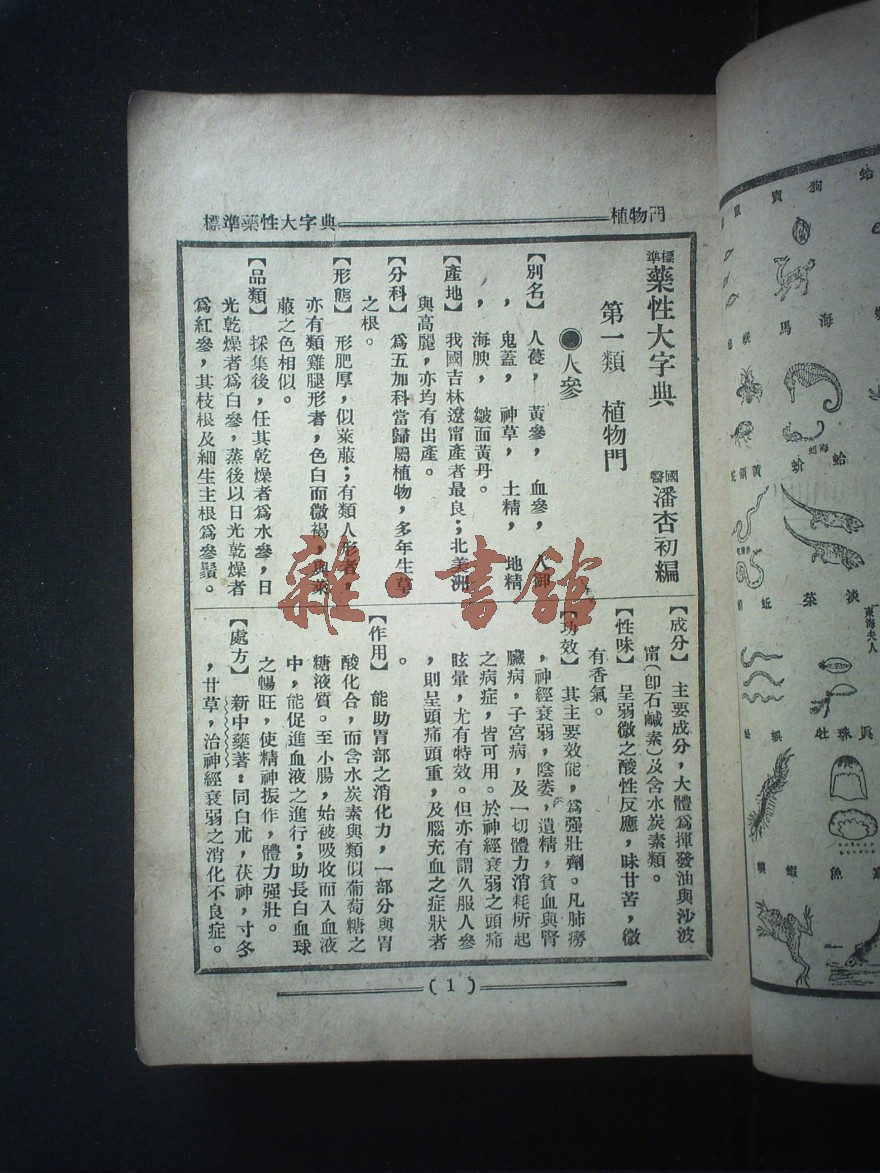 標準藥性大字典
植物門
標準藥性大字典
國醫潘杏初編
第一類　植物門
●人參
【別名】　人葠，黃參，血參，人御
，鬼蓋，神草，土精，地精
，海腴，皺面黃丹。
【產地】　我國吉林遼甯產者最良；北美洲
與高麗，亦均有出產。
【分科】　爲五加科當歸屬植物，多年生草
之根。
【形態】　形肥厚，似萊菔；有類人形者，
亦有類雞腿形者，色白而微褐，與萊
菔之色相似。
【品類】　採集後，任其乾燥者爲水參，日
光乾燥者爲白參，蒸後以日光乾燥者
爲紅參，其枝根及細生主根爲參鬚。
【成分】　主要成分，大體爲揮發油與沙波
甯（卽石鹹素）及含水炭素類。
【性味】　呈弱微之酸性反應，味甘苦，微
有香氣。
【功效】　其主要效能，爲强壯劑。凡肺癆
，神經衰弱，陰萎，遺精，貧血與腎
臟病，子宮病，及一切體力消耗所起
之病症，皆可用。於神經衰弱之頭痛
眩暈，尤有特效。但亦有謂久服人參
，則呈頭痛頭重，及腦充血之症狀者
。
【作用】　能助胃部之消化力，一部分與胃
酸化合，而含水炭素與類似葡萄糖之
糖液質。至小腸，始被吸收而入血液
中，能促進血液之進行；助長白血球
之暢旺，使精神振作，體力强壯。
【處方】　新中藥著：同白朮，茯神，寸冬
，甘草，治神經衰弱之消化不良症。
(1)
雜·書館
蛤
狗
寶
鼠
海
馬
蛤
蚧
黃
淡
菜
東海夫人
珠
牡
魚
蝦